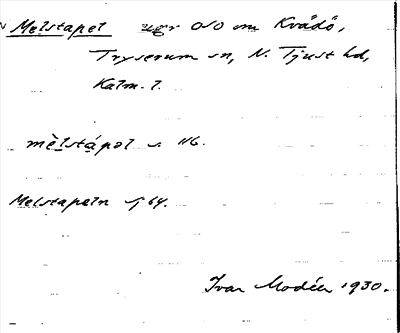 Melstapel ugr OSO om Kvädö,
Tryserum sn, N. Tjust hd,
Kalm. l.
mèlstápəl s. 116.
Melstapeln gf 64.
Ivar Modéer 1930.